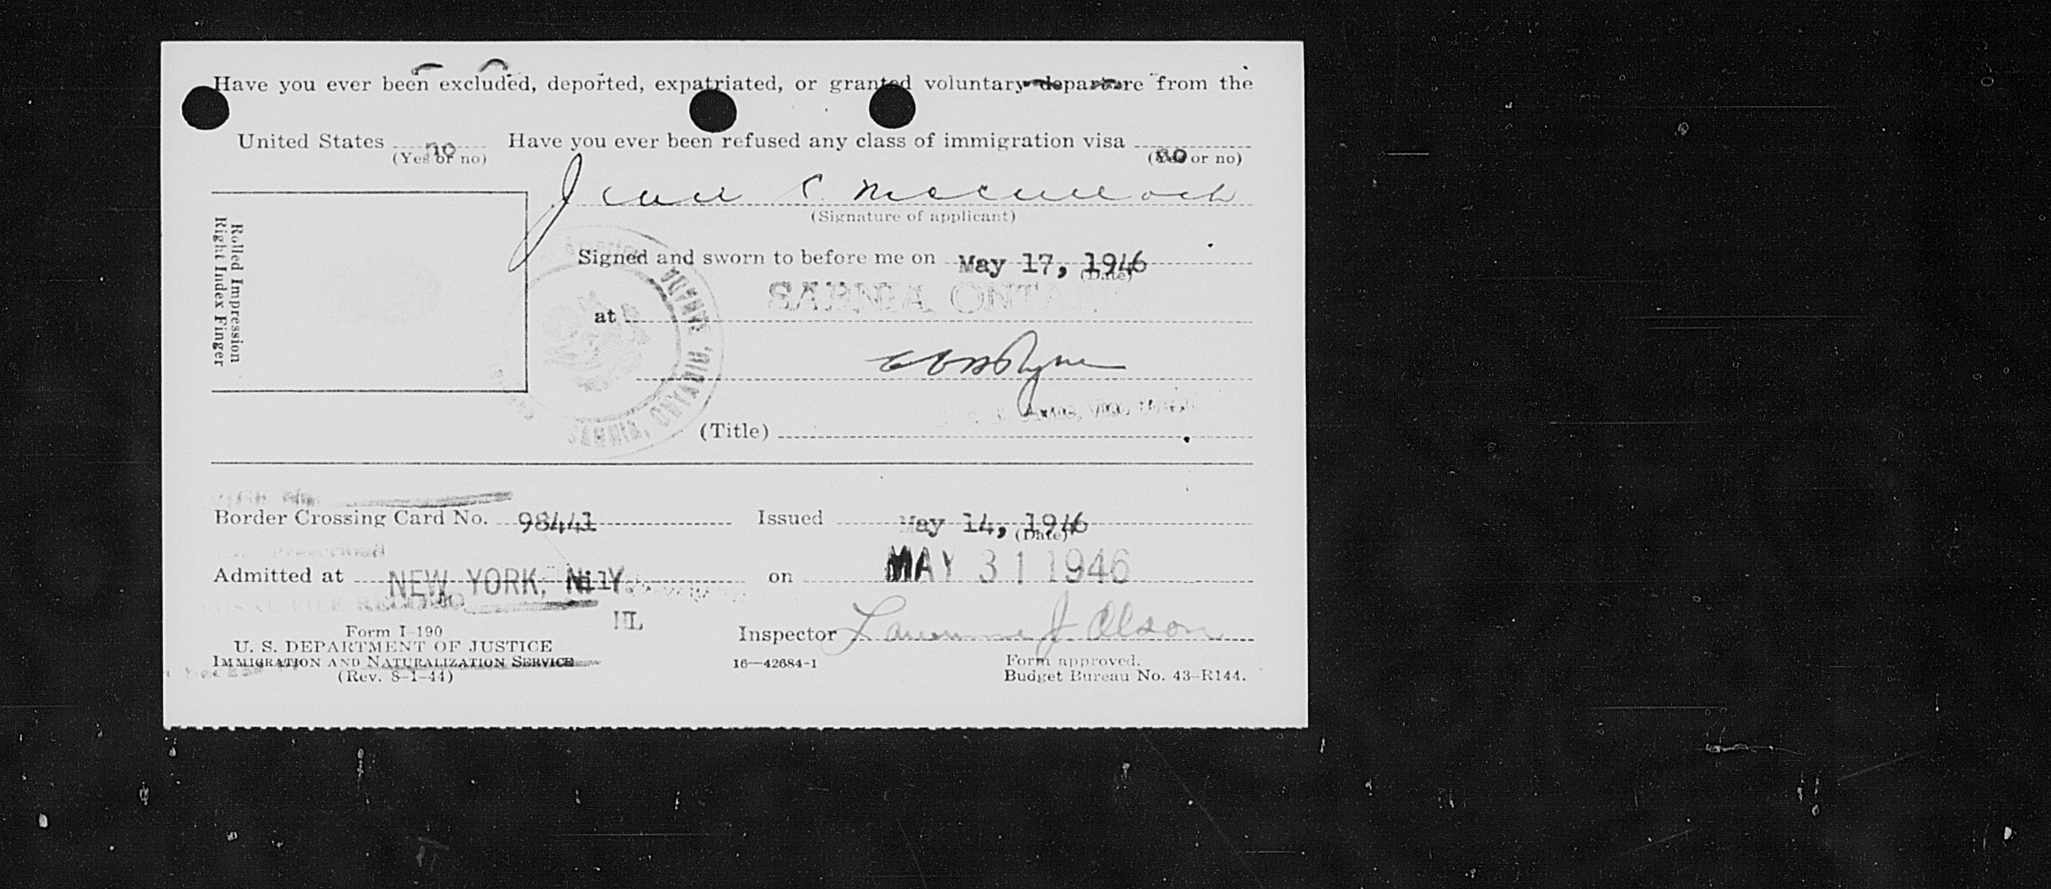 Have you ever been excluded, deported, expatriated, or granted voluntary departure from the
United States no Have you ever been refused any class of immigration visa no
(Yes or no) (Yes or no)
McCulloch
(Signature of applicant)
Rolled Impression
Right Index Finger
Signed and sworn to before me on May 17, 1946
(Date)
SARNIA, ONTARIO
at
SARNIA, ONTARIO
(Title)
Border Crossing Card No. 98441 Issued May 14, 1946
(Date)
Admitted at NEW YORK, N.Y. on MAY 31 1946
Inspector J Olson
Form I-190
U. S. DEPARTMENT OF JUSTICE
IMMIGRATION AND NATURALIZATION SERVICE
(Rev. 8-1-44)
16—42684-1
Form approved.
Budget Bureau No. 43-R144.